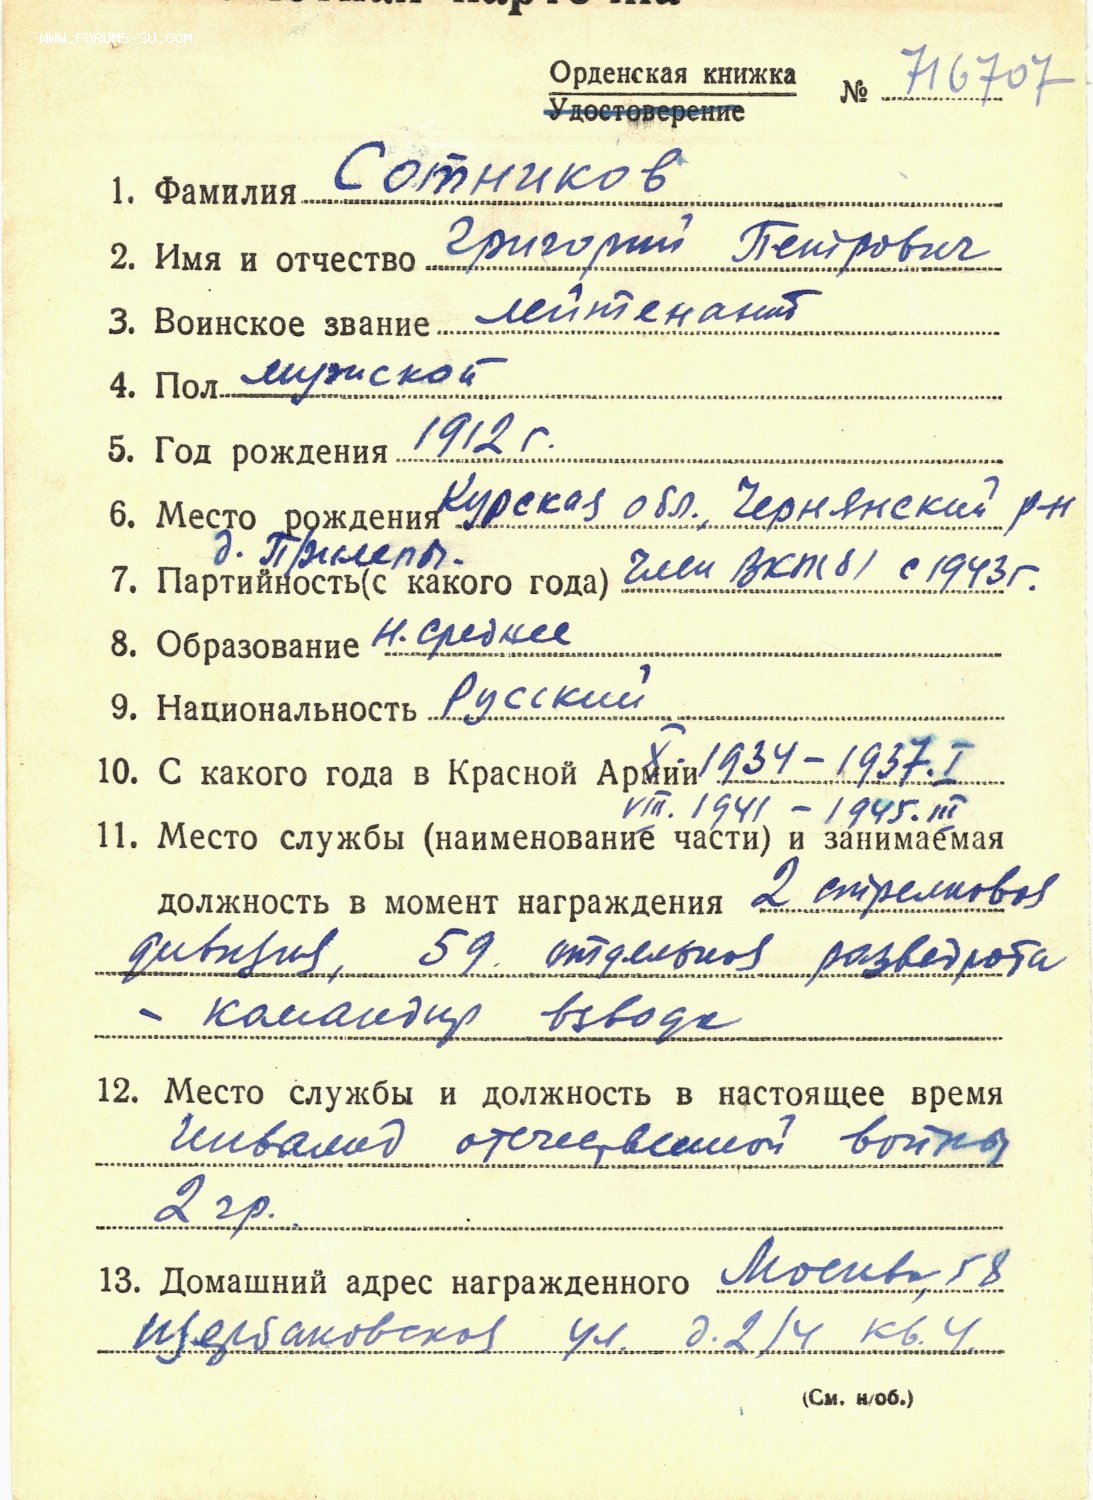 WWW.FORUMS-SU.COM
Орденская книжка № 716707
Удостоверение
1. Фамилия Сотников
2. Имя и отчество Григорий Петрович
3. Воинское звание лейтенант
4. Пол мужской
5. Год рождения 1912 г.
6. Место рождения Курская обл., Чернянский р-н
д. Прилепы.
7. Партийность(с какого года) Член ВКП(б) с 1943 г.
8. Образование н. среднее
9. Национальность Русский
10. С какого года в Красной Армии X. 1934 – 1937. I
VIII. 1941 – 1945. III
11. Место службы (наименование части) и занимаемая
должность в момент награждения 2 стрелковая
дивизия, 59 отдельная разведрота
– командир взвода
12. Место службы и должность в настоящее время
Инвалид отечественной войны
2 гр.
13. Домашний адрес награжденного Москва, 58
Щербаковская ул. д. 2/4 кв. 4.
(См. н/об.)